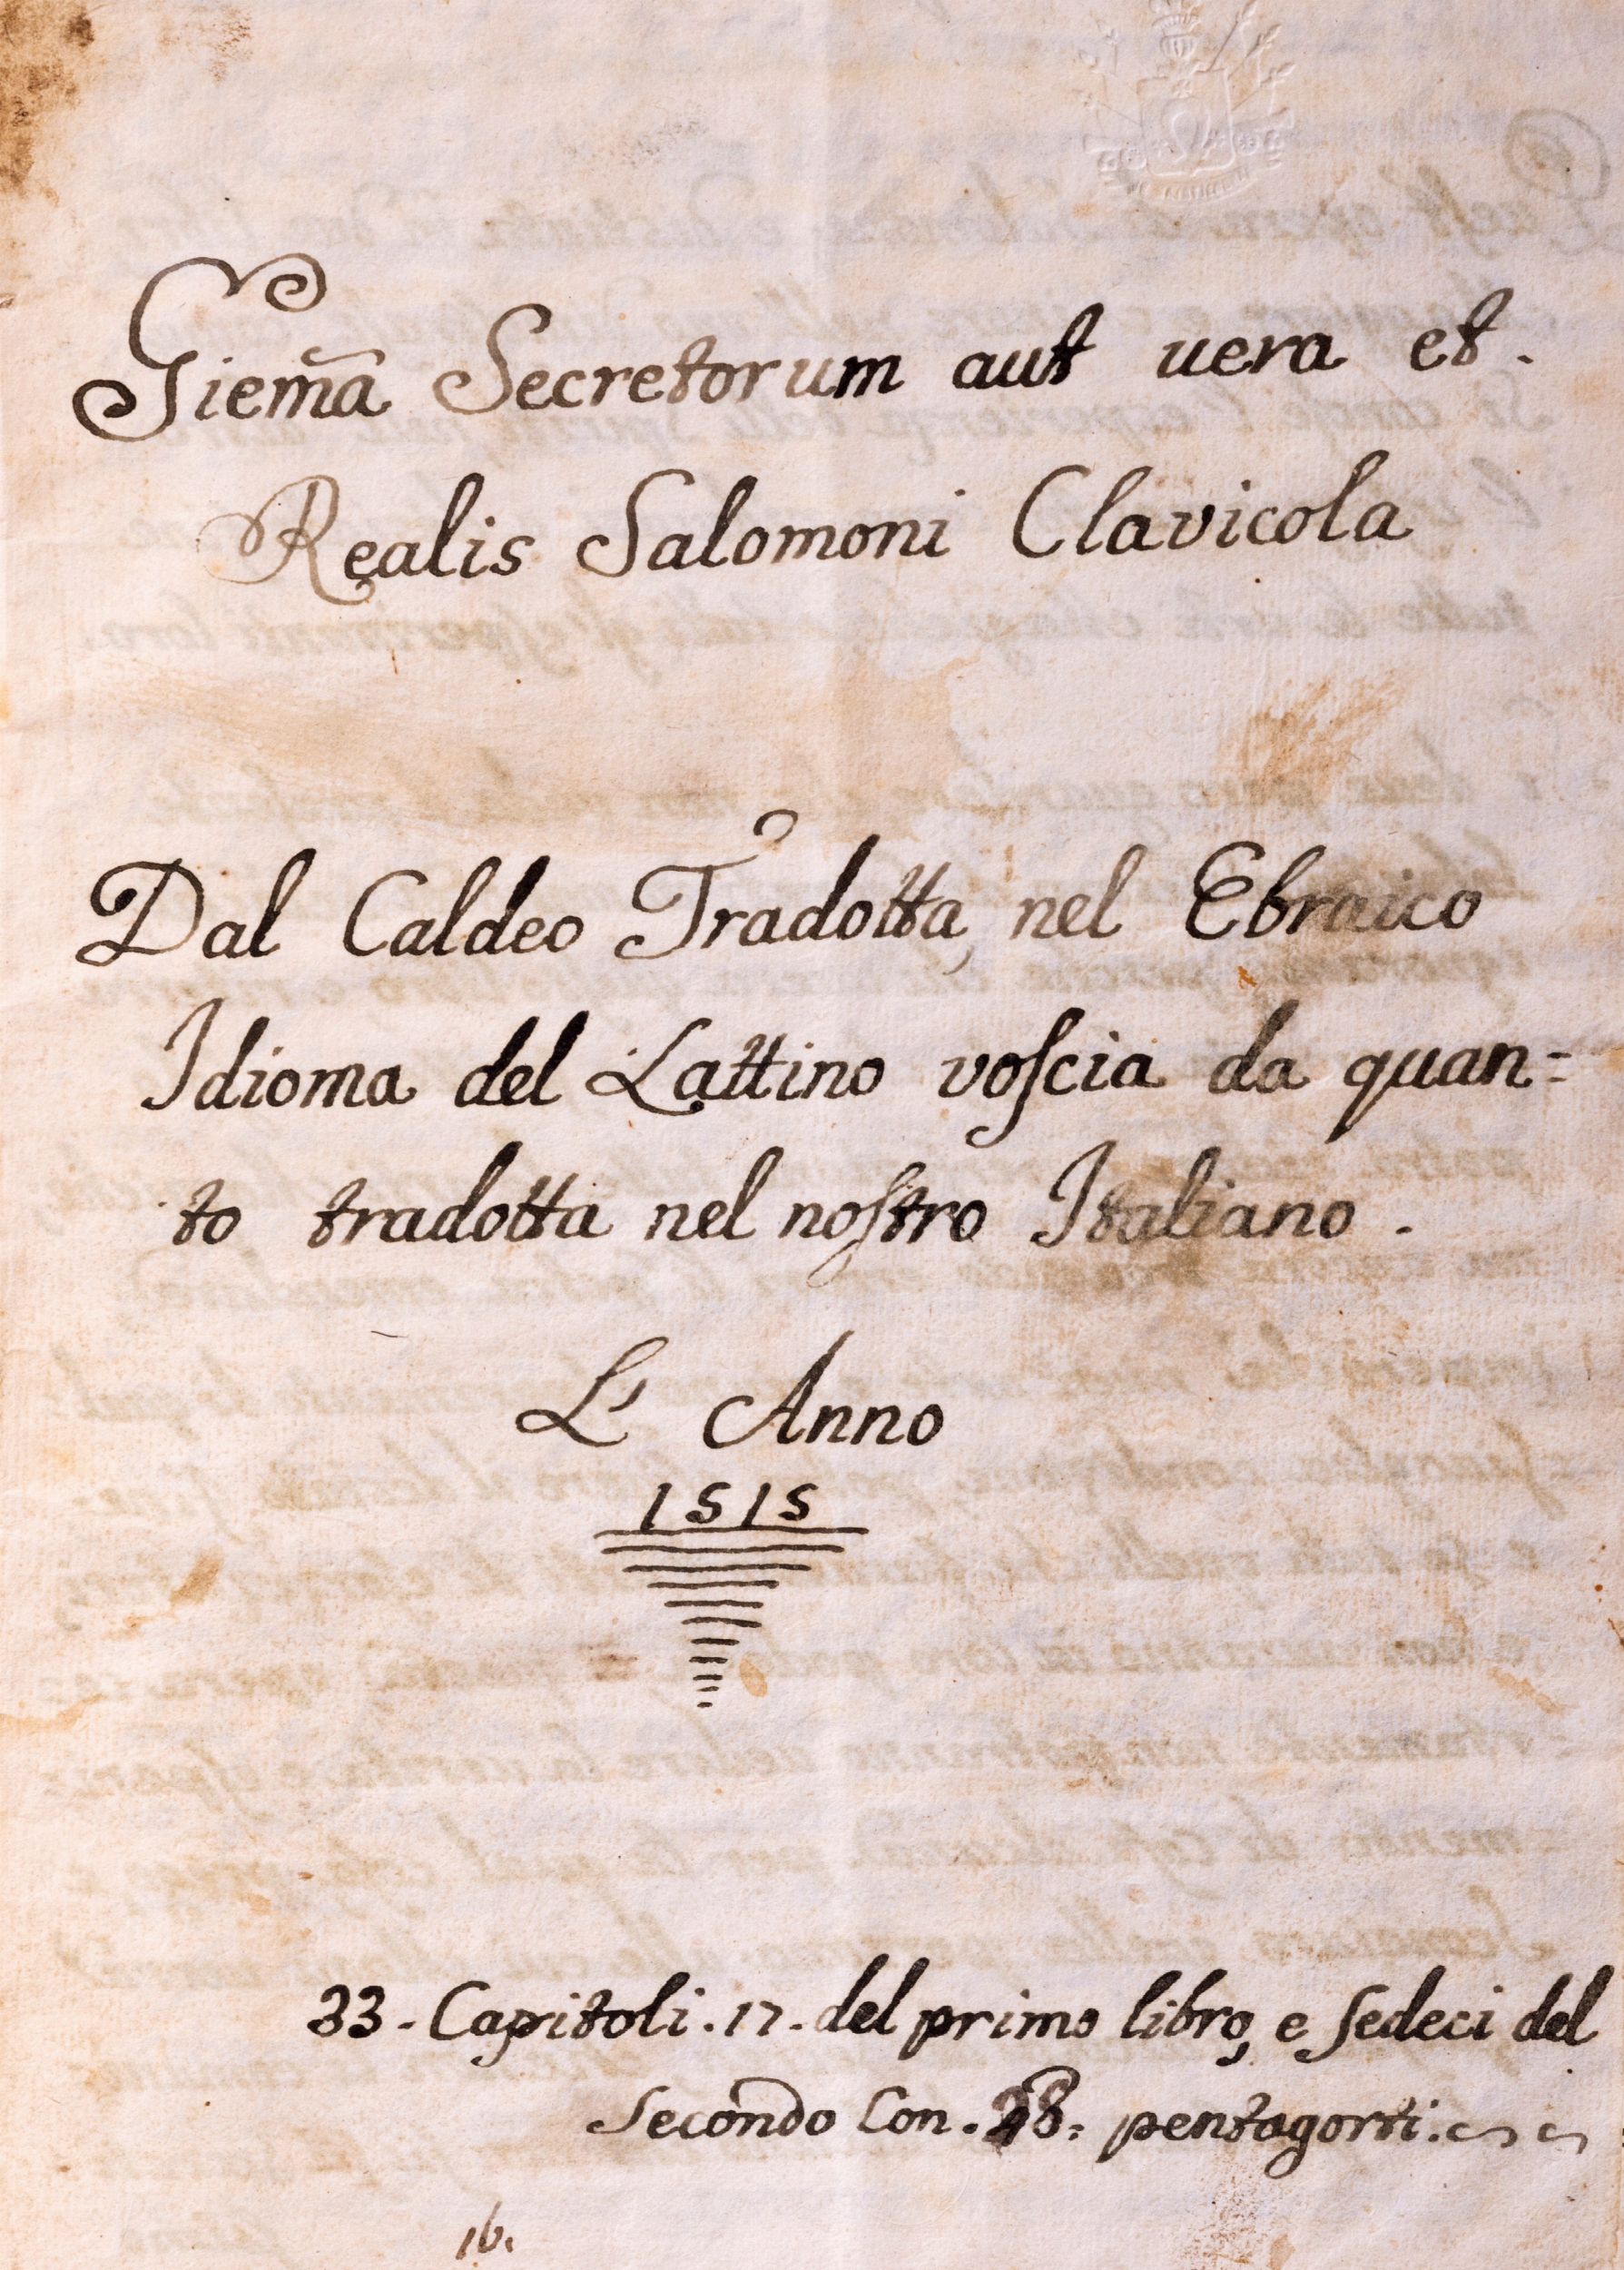 Giem̃a Secretorum aut uera et.
Realis Salomoni Clavicola
Dal Caldeo Tradotta, nel Ebraico
Idioma del Lattino voſcia da quan=
to tradotta nel noſtro Italiano.
L' Anno
1515
33. Capitoli. 17. del primo libro, e ſedeci del
Secondo Con. 28: pentagorti.
16.